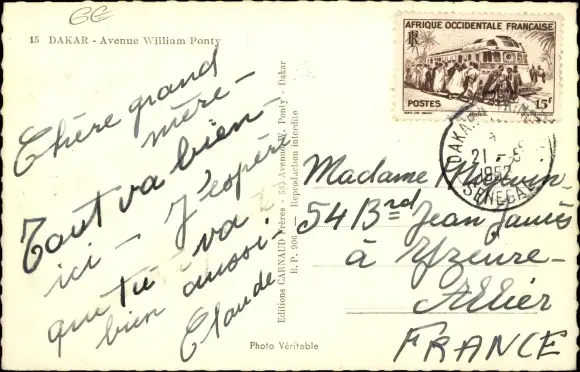 GE
15 DAKAR - Avenue William Ponty
Chère grand
mère -
Tout va bien -
ici - J'espère
que tu va
bien aussi -
Claude
Editions CARNAUD Frères - 53, Avenue W. Ponty - Dakar
B. P. 906 - Reproduction interdite
Photo Véritable
AFRIQUE OCCIDENTALE FRANÇAISE
RF
POSTES
SÉNÉGAL
15F
DAKAR
21 - 8
1952
SENEGAL
Madame
54 Brd Jean Jaurès
à Yzeure -
Allier
FRANCE